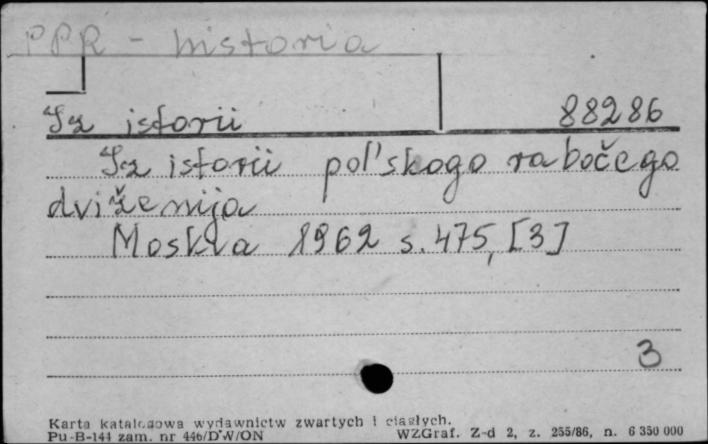 PPR - historia
Iz istorii 88286
Iz istorii pol'skogo rabočego
dviženija
Moskva 1962 s. 475, [3]
3
Karta katalogowa wydawnictw zwartych i ciągłych.
Pu-B-144 zam. nr 446/DW/ON WZGraf. Z-d 2, z. 255/86, n. 6 350 000